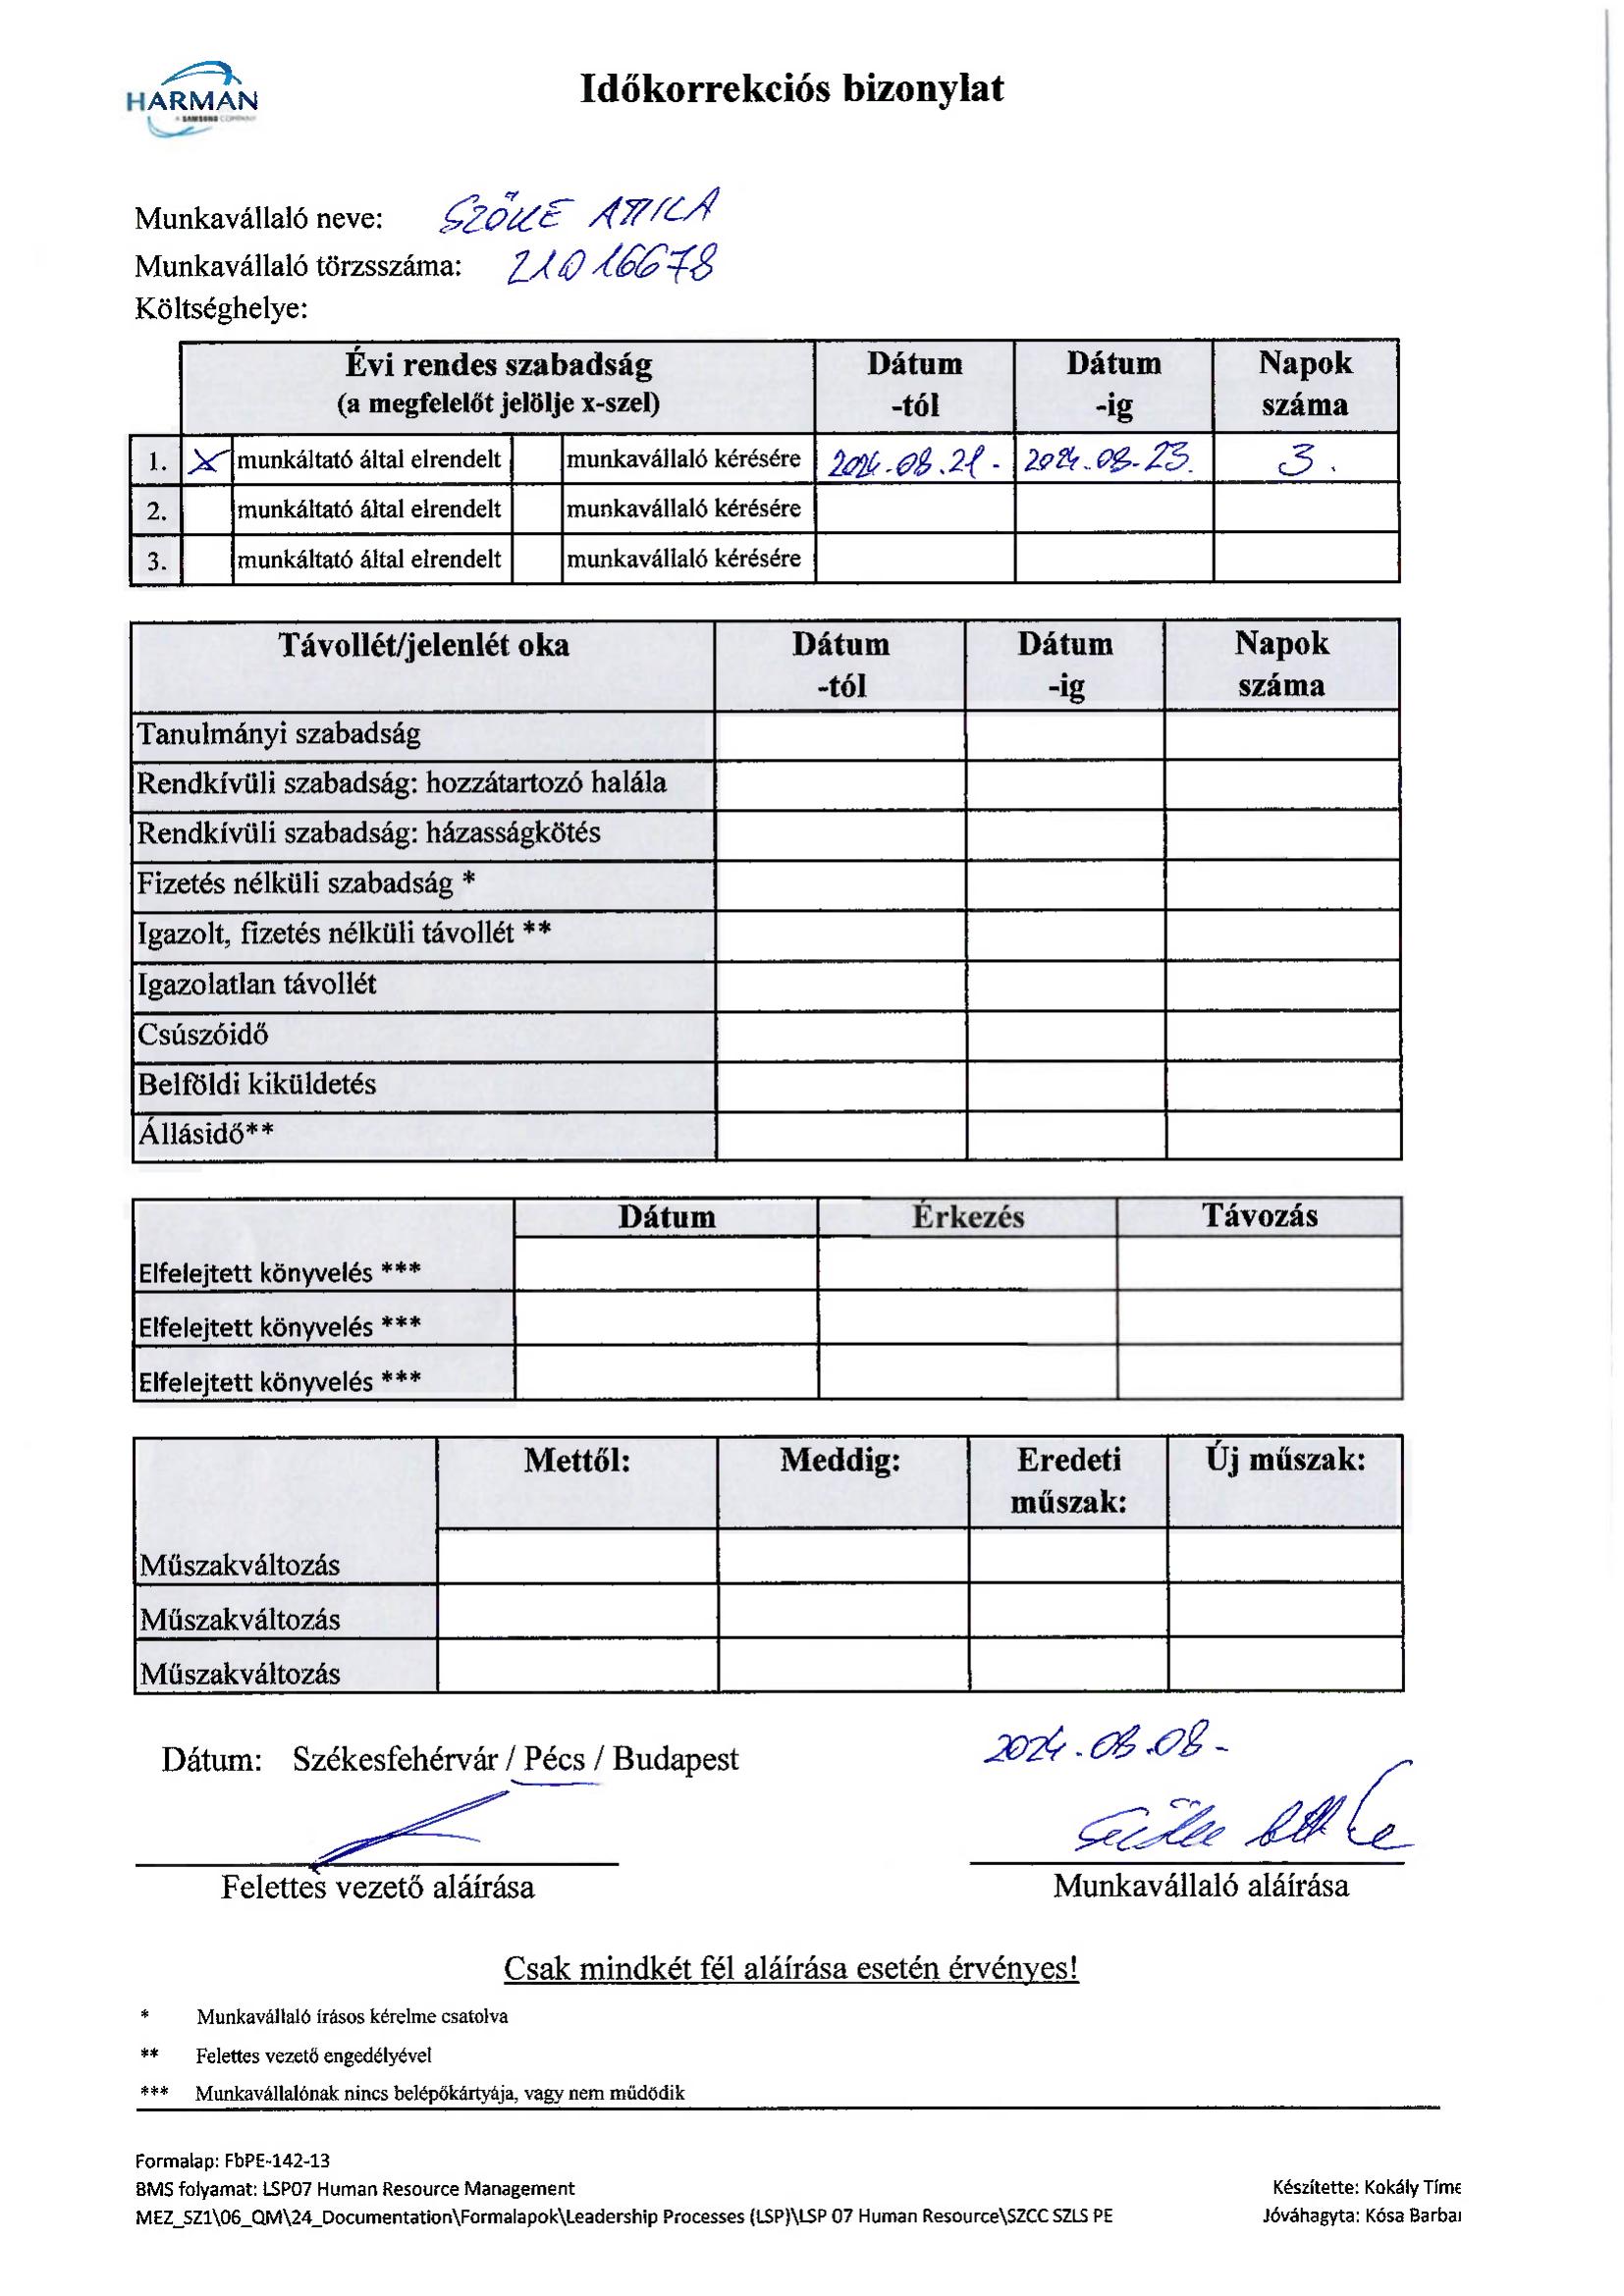 HARMAN
A SAMSUNG COMPANY
Időkorrekciós bizonylat
Munkavállaló neve: SZŐKE ATTILA
Munkavállaló törzsszáma: 21016678
Költséghelye:
Évi rendes szabadság (a megfelelőt jelölje x-szel) Dátum -tól Dátum -ig Napok száma
1. X munkáltató által elrendelt munkavállaló kérésére 2024.08.21. 2024.08.23. 3.
2. munkáltató által elrendelt munkavállaló kérésére
3. munkáltató által elrendelt munkavállaló kérésére
Távollét/jelenlét oka Dátum -tól Dátum -ig Napok száma
Tanulmányi szabadság
Rendkívüli szabadság: hozzátartozó halála
Rendkívüli szabadság: házasságkötés
Fizetés nélküli szabadság *
Igazolt, fizetés nélküli távollét **
Igazolatlan távollét
Csúszóidő
Belföldi kiküldetés
Állásidő**
Dátum Érkezés Távozás
Elfelejtett könyvelés ***
Elfelejtett könyvelés ***
Elfelejtett könyvelés ***
Mettől: Meddig: Eredeti műszak: Új műszak:
Műszakváltozás
Műszakváltozás
Műszakváltozás
Dátum: Székesfehérvár / Pécs / Budapest 2024.08.08.
Szőke Attila
Felettes vezető aláírása Munkavállaló aláírása
Csak mindkét fél aláírása esetén érvényes!
* Munkavállaló írásos kérelme csatolva
** Felettes vezető engedélyével
*** Munkavállalónak nincs belépőkártyája, vagy nem működik
Formalap: FbPE-142-13
BMS folyamat: LSP07 Human Resource Management Készítette: Kokály Tíme
MEZ_SZ1\06_QM\24_Documentation\Formalapok\Leadership Processes (LSP)\LSP 07 Human Resource\SZCC SZLS PE Jóváhagyta: Kósa Barbar